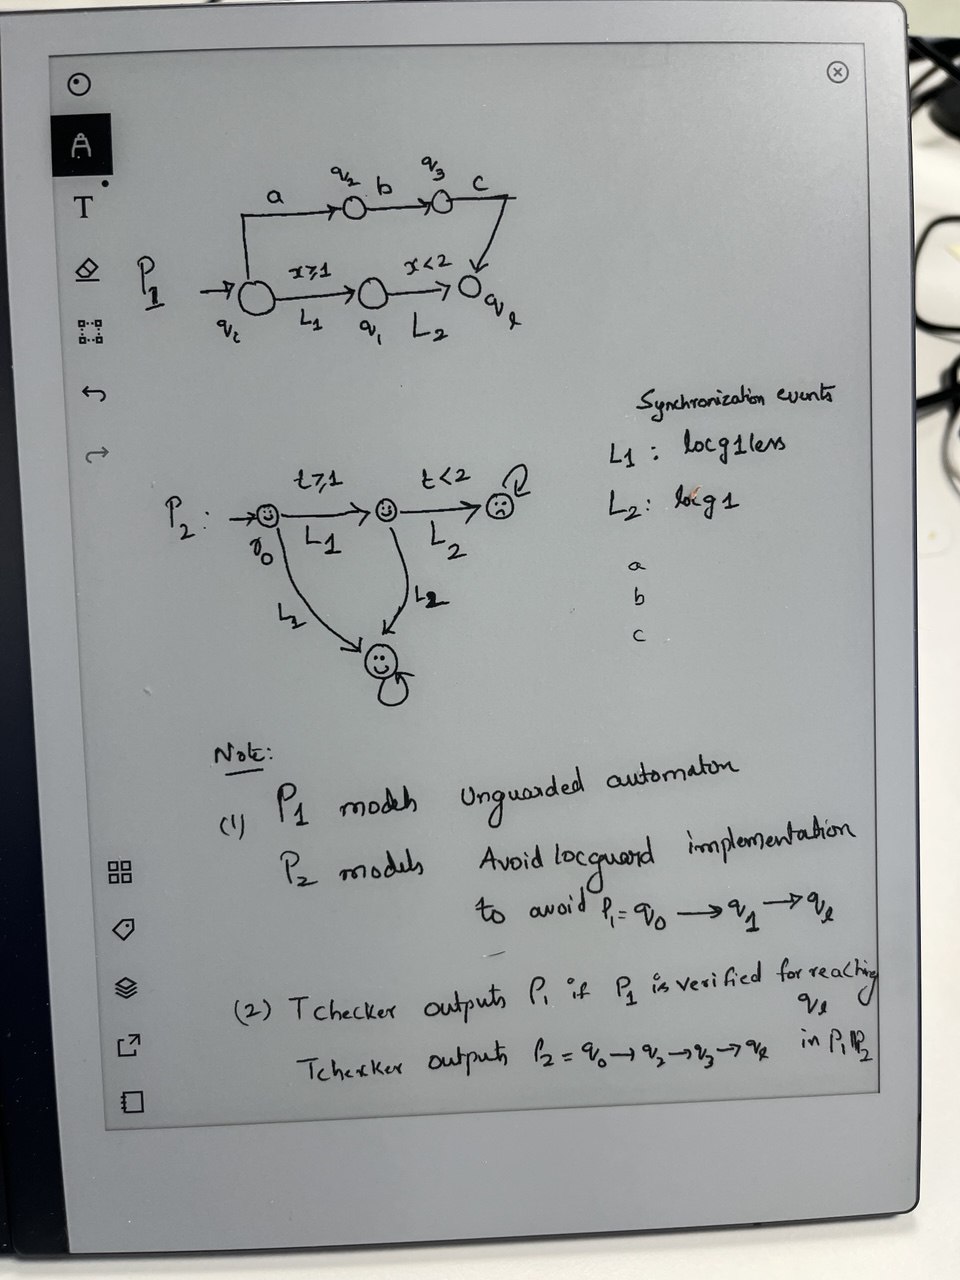 q2
q3
a
b
c
P1
x≥1
x<2
qi
L1
q1
L2
ql
Synchronization events
L1 : locg1less
L2: locg1
a
b
c
t≥1
t<2
P2:
r0
L1
L2
L2
Note:
(1) P1 models Unguarded automaton
P2 models Avoid locguard implementation
to avoid P1= q0 → q1 → ql
(2) Tchecker outputs P1 if P1 is verified for reaching
ql
Tchecker outputs P2 = q0 → q2 → q3 → ql in P1||P2
T